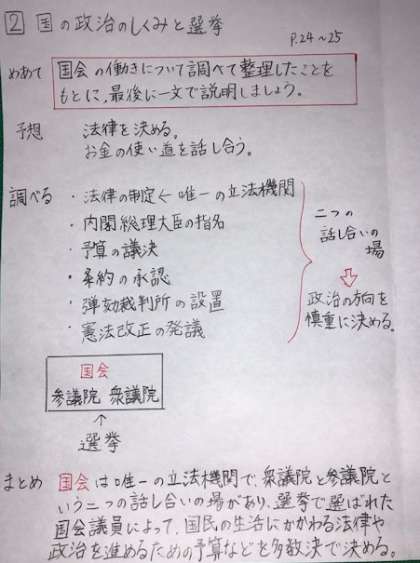 2 国の政治のしくみと選挙
P.24～25
めあて 国会の働きについて調べて整理したことを
もとに、最後に一文で説明しましょう。
予想 法律を決める。
お金の使い道を話し合う。
調べる ・法律の制定←唯一の立法機関
・内閣総理大臣の指名
・予算の議決
・条約の承認
・弾劾裁判所の設置
・憲法改正の発議
二つの
話し合いの
場
⇩
政治の方向を
慎重に決める。
国会
参議院 衆議院
↑
選挙
まとめ 国会は唯一の立法機関で、衆議院と参議院と
いう二つの話し合いの場があり、選挙で選ばれた
国会議員によって、国民の生活にかかわる法律や
政治を進めるための予算などを多数決で決める。